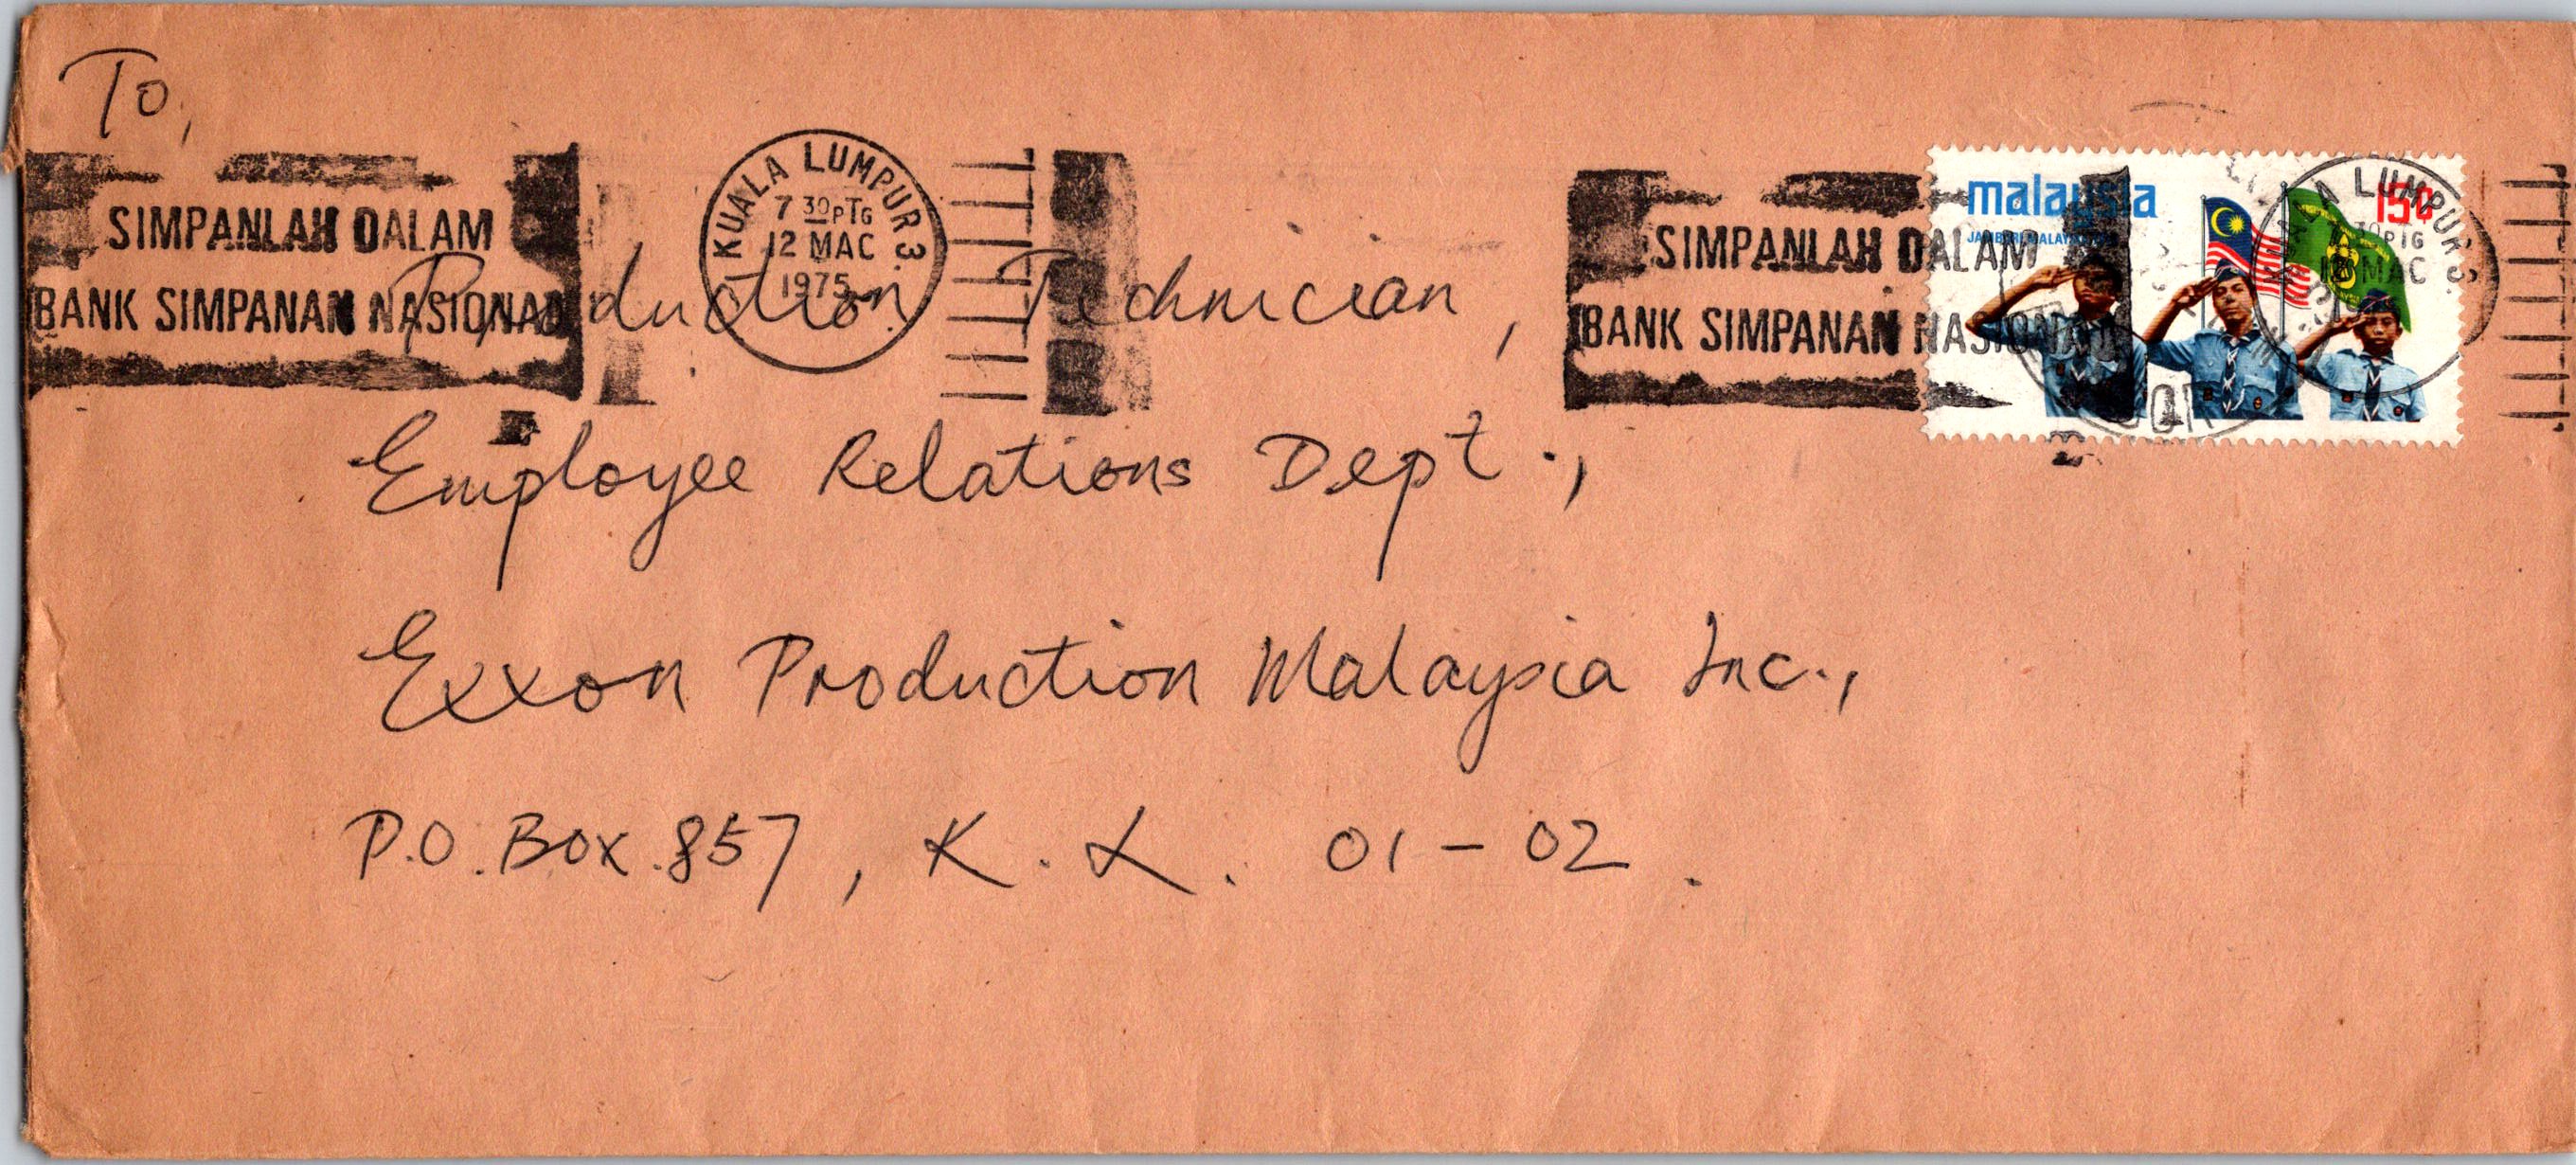 To,
SIMPANLAH DALAM
BANK SIMPANAN NASIONAL
KUALA LUMPUR 3.
7 30PTG
12 MAC
1975
SIMPANLAH DALAM
BANK SIMPANAN NASIONAL
malaysia
15¢
KUALA LUMPUR 3.
MAC
Production Technician,
Employee Relations Dept.,
Exxon Production Malaysia Inc.,
P.O. Box 857, K. L. 01-02.